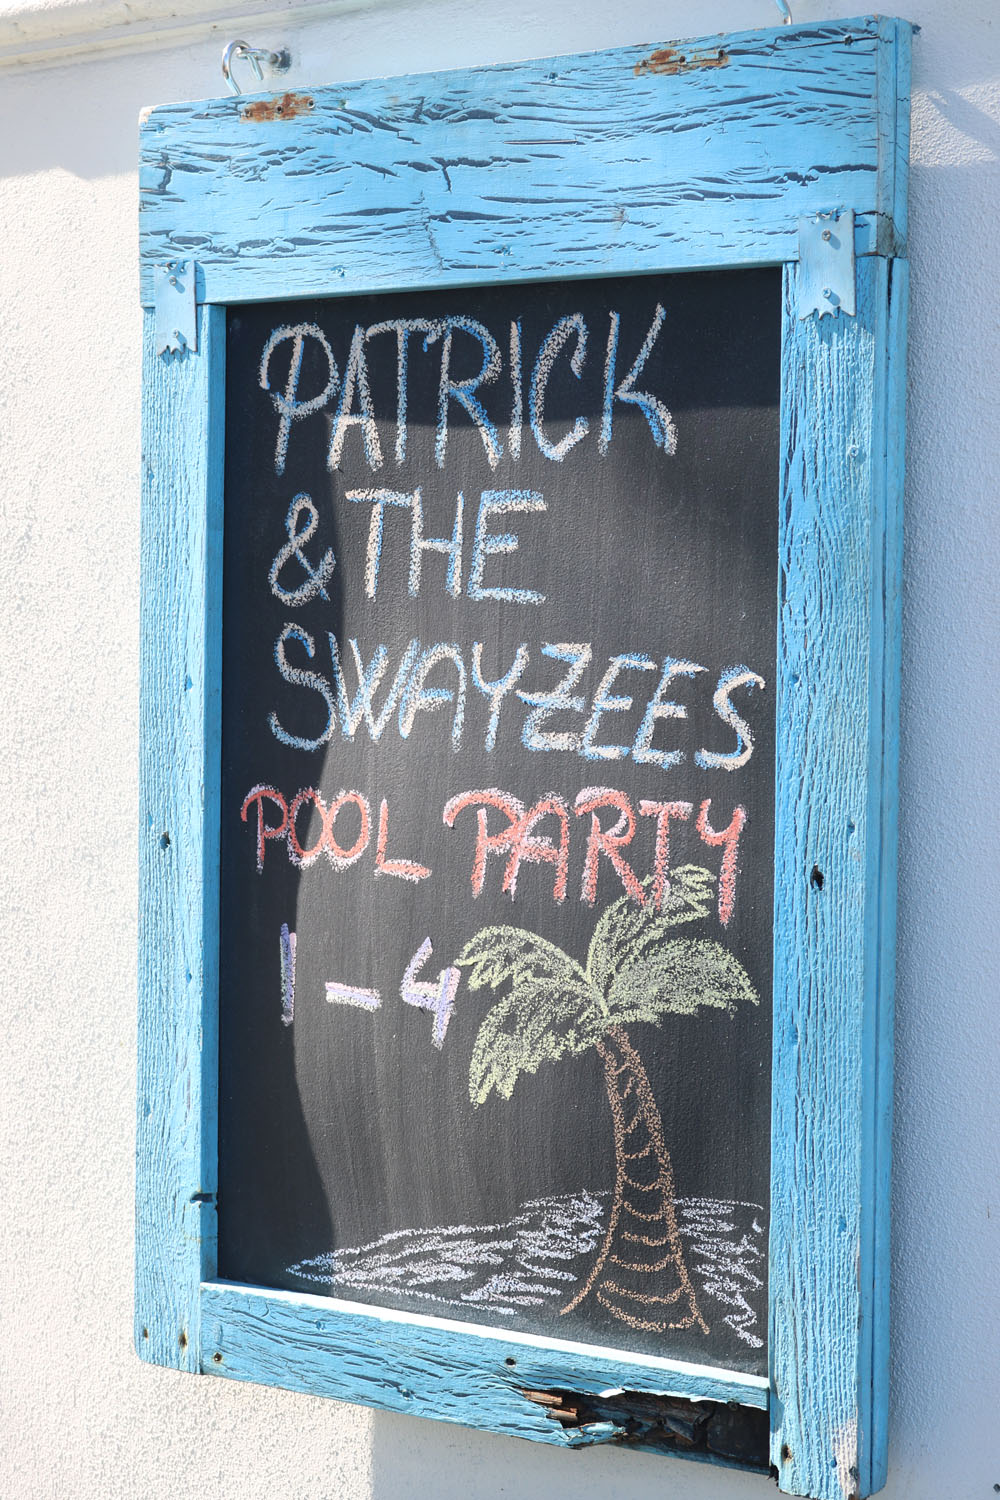 PATRICK
& THE
SWAYZEES
POOL PARTY
1-4